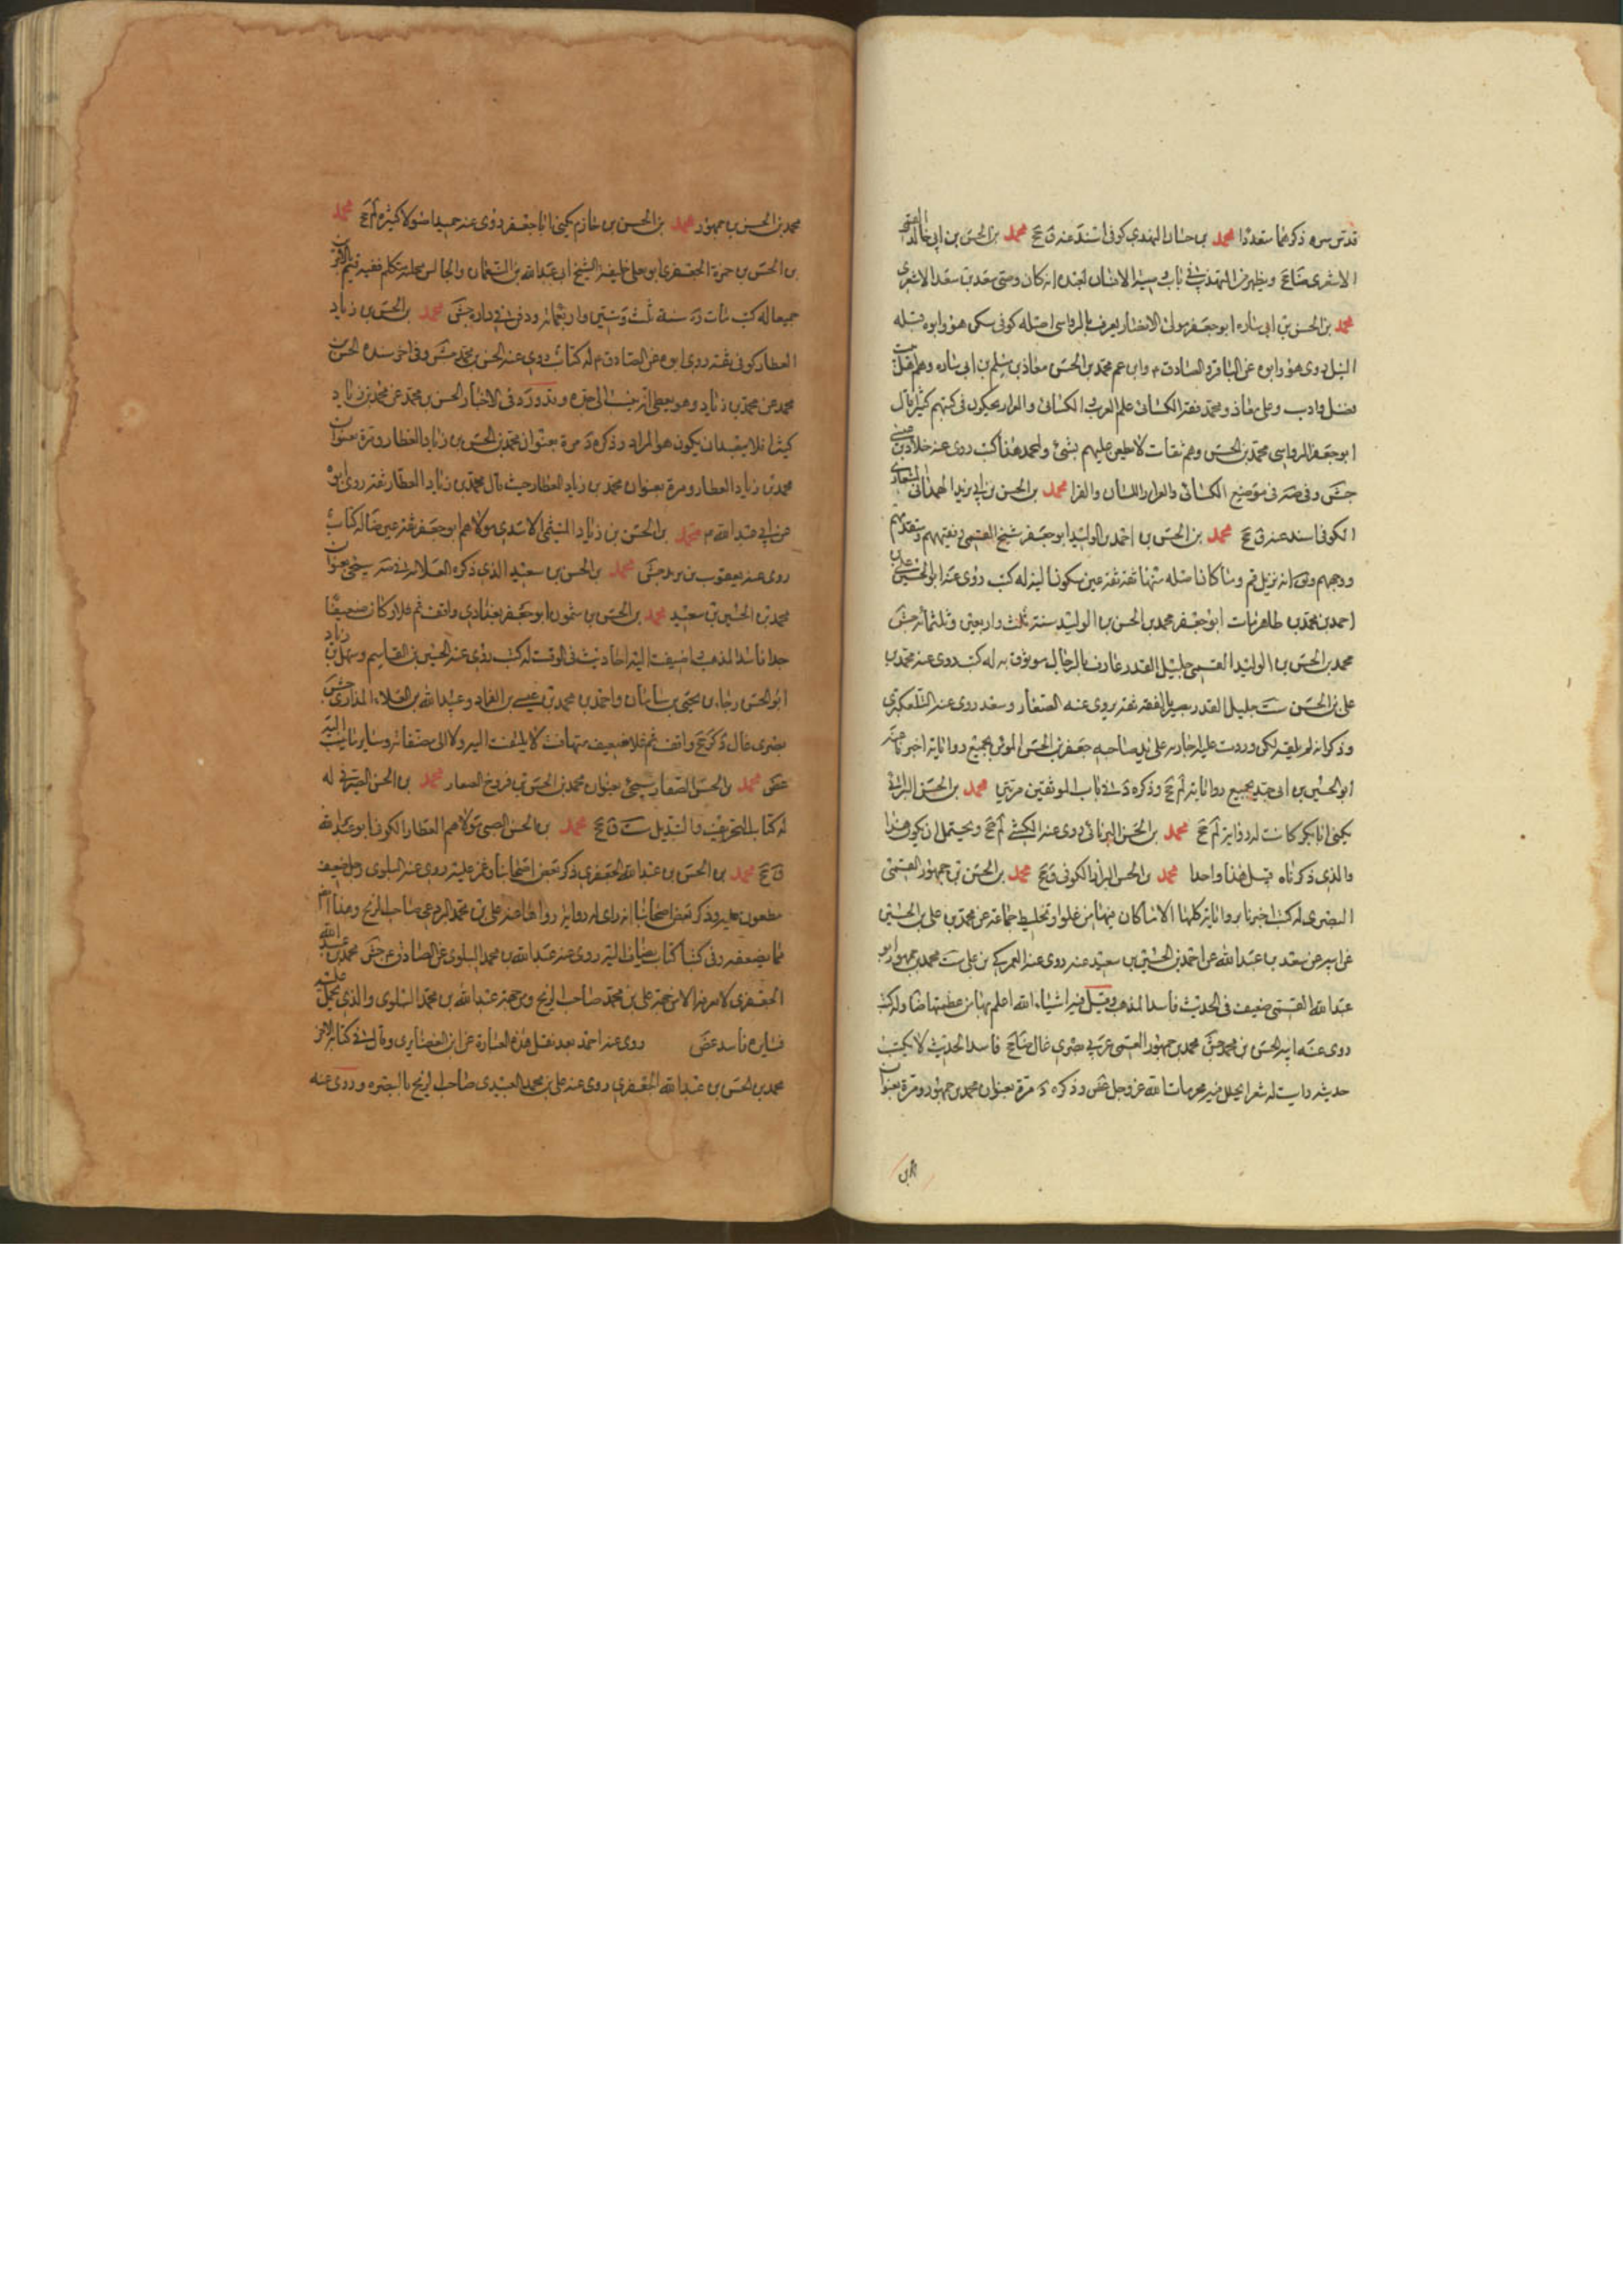 قدس سره ذكرهما متعددا محمد بن حسان النهدي كوفي اسند عنه ق جخ محمد بن الحسن بن ابي خالد القمي
الاشعري ضا جخ ويظهر من التهذيب في باب وصية الانسان لعبده انه كان وصي سعد بن سعد الاشعري
محمد بن الحسن بن ابي ساره ابو جعفر مولى الانصار يعرف بالرواسي اصله كوفي سكن هو وابوه قبله
النيل روى هو وابوه عن الباقر والصادق م وابن عم محمد بن الحسن معاذ بن مسلم بن ابي ساره وهم اهل بيت
فضل وادب وعلى معاذ ومحمد تفقه الكسائي علم العرب والكسائي والفراء يحكون في كتبهم كثيرا قال
ابو جعفر الرواسي محمد بن الحسن وهم ثقات لا يطعن عليهم بشئ ولمحمد هذا كتب روى عنه خلاد بن عيسى
جش وفي صه في موضع الكسائي والفراء اللسان والفرا محمد بن الحسن بن ابي يزيد الهمداني المشعاري
الكوفي اسند عنه ق جخ محمد بن الحسن بن احمد بن الوليد ابو جعفر شيخ القميين وفقيههم ومتقدمهم
ووجههم ويق انه نزيل قم وما كان اصله منها ثقة ثقة عين مسكون اليه له كتب روى عنه ابو الحسين علي بن
احمد بن محمد بن طاهر مات ابو جعفر محمد بن الحسن بن الوليد سنة ثلث واربعين وثلثمائة جش
محمد بن الحسن بن الوليد القمي جليل القدر عارف بالرجال موثوق به له كتب روى عنه محمد بن
علي بن الحسين ست جليل القدر بصير بالفقه ثقة يروى عنه الصفار وسعد روى عنه التلعكبري
وذكر انه لم يلقه لكن وردت عليه اجازته على يد صاحبه جعفر بن الحسن المؤمن بجميع رواياته اخبرنا عنه
ابو الحسين بن ابي جيد بجميع رواياته لم جخ وذكره د في باب الموثقين مرتين محمد بن الحسن البراثي
يكنى ابا بكر كانت له رواية لم جخ محمد بن الحسن البرناني روى عنه الكشي لم جخ ويحتمل ان يكون هذا
والذي ذكرناه قبل هذا واحدا محمد بن الحسن البزاز الكوفي ق جخ محمد بن الحسن بن جمهور القمي
البصري له كتب اخبرنا برواياته كلها الا ما كان فيها من غلو او تخليط جماعة عن محمد بن علي بن الحسين
عن ابيه عن سعد بن عبد الله عن احمد بن الحسين بن سعيد عنه روى عنه العمركي بن علي ست محمد بن جمهور ابو
عبد الله القمي ضعيف في الحديث فاسد المذهب وقيل فيه اشياء الله اعلم بها من عظمها ضا وله كتب
روى عنه ابنه الحسن بن محمد جش محمد بن جمهور العمي عربي بصري غال ضا جخ فاسد الحديث لا يكتب
حديثه رايت له شعرا يحلل فيه محرمات الله عز وجل غض وذكره د مرة بعنوان محمد بن جمهور ومرة بعنوان
محمد بن الحسن بن جمهور محمد بن الحسن بن حازم يكنى ابا جعفر روى عنه حميد اصولا كثيرة لم جخ محمد
بن الحسن بن حمزة الجعفري ابو يعلى خليفة الشيخ ابي عبد الله بن النعمان والجالس مجلسه متكلم فقيه قيم بالامرين
جميعا له كتب مات ره سنة ثلث وستين واربعمائة ودفن في داره جش محمد بن الحسن بن زياد
العطار كوفي ثقة روى ابوه عن الصادق م له كتاب روى عنه الحسن بن محمد جش وفي اخر سنده الحسن بن
محمد عن محمد بن زياد وهو يعطي انه نسب الى جده وقد ورد في الاخبار الحسن بن محمد عن محمد بن زياد
كثيرا فلا يبعد ان يكون هو المراد وذكره د مرة بعنوان محمد بن الحسن بن زياد العطار ومرة بعنوان
محمد بن زياد العطار ومرة بعنوان محمد بن زياد العطار حيث قال محمد بن زياد العطار ثقة روى ابوه
عن ابي عبد الله م محمد بن الحسن بن زياد الميثمي الاسدي مولاهم ابو جعفر ثقة عين ضا له كتاب
روى عنه يعقوب بن يزيد جش محمد بن الحسن بن سعيد الذي ذكره العلامة في صه سيجئ بعنوان
محمد بن الحسين بن سعيد محمد بن الحسن بن شمون ابو جعفر بغدادي واقف ثم غلا وكان ضعيفا
جدا فاسد المذهب اضيفت اليه احاديث في الوقف له كتب روى عنه الحسين بن القاسم وسهل بن زياد
ابو الحسن رجاء بن يحيى بن سامان واحمد بن محمد بن عيسى بن الغراد وعبيد الله بن العلاء المذاري جش
بصري غال دى كر جخ واقف ثم غلا ضعيف متهافت لا يلتفت اليه ولا الى مصنفاته وساير ما ينسب اليه
غض محمد بن الحسن الصفار سيجئ بعنوان محمد بن الحسن بن فروخ الصفار محمد بن الحسن الصيرفي له
له كتاب التحريف والتبديل ست ق جخ محمد بن الحسن الضبي مولاهم العطار الكوفي ابو عبد الله
ق جخ محمد بن الحسن بن عبد الله الجعفري ذكره بعض اصحابنا وغمز عليه روى عنه البلوي رجل ضعيف
مطعون عليه وذكر بعض اصحابنا انه راى له رواية رواها عنه علي بن محمد البردعي صاحب الزنج وهذا ايضا
مما يضعفه وفي كتبنا كتاب يضاف اليه روى عنه عبد الله بن محمد البلوي عن الصادق م جش محمد بن عبد الله
الجعفري لا نعرفه الا من جهة علي بن محمد صاحب الزنج ومن جهة عبد الله بن محمد البلوي والذي يحمل عليه
فسايره فاسد غض روى عنه احمد بعد نقل هذه العبارة عن ابن الغضايري وقال في كتابه الاخر
محمد بن الحسن بن عبد الله الجعفري روى عنه علي بن محمد العبيدي صاحب الزنج بالبصرة وروى عنه